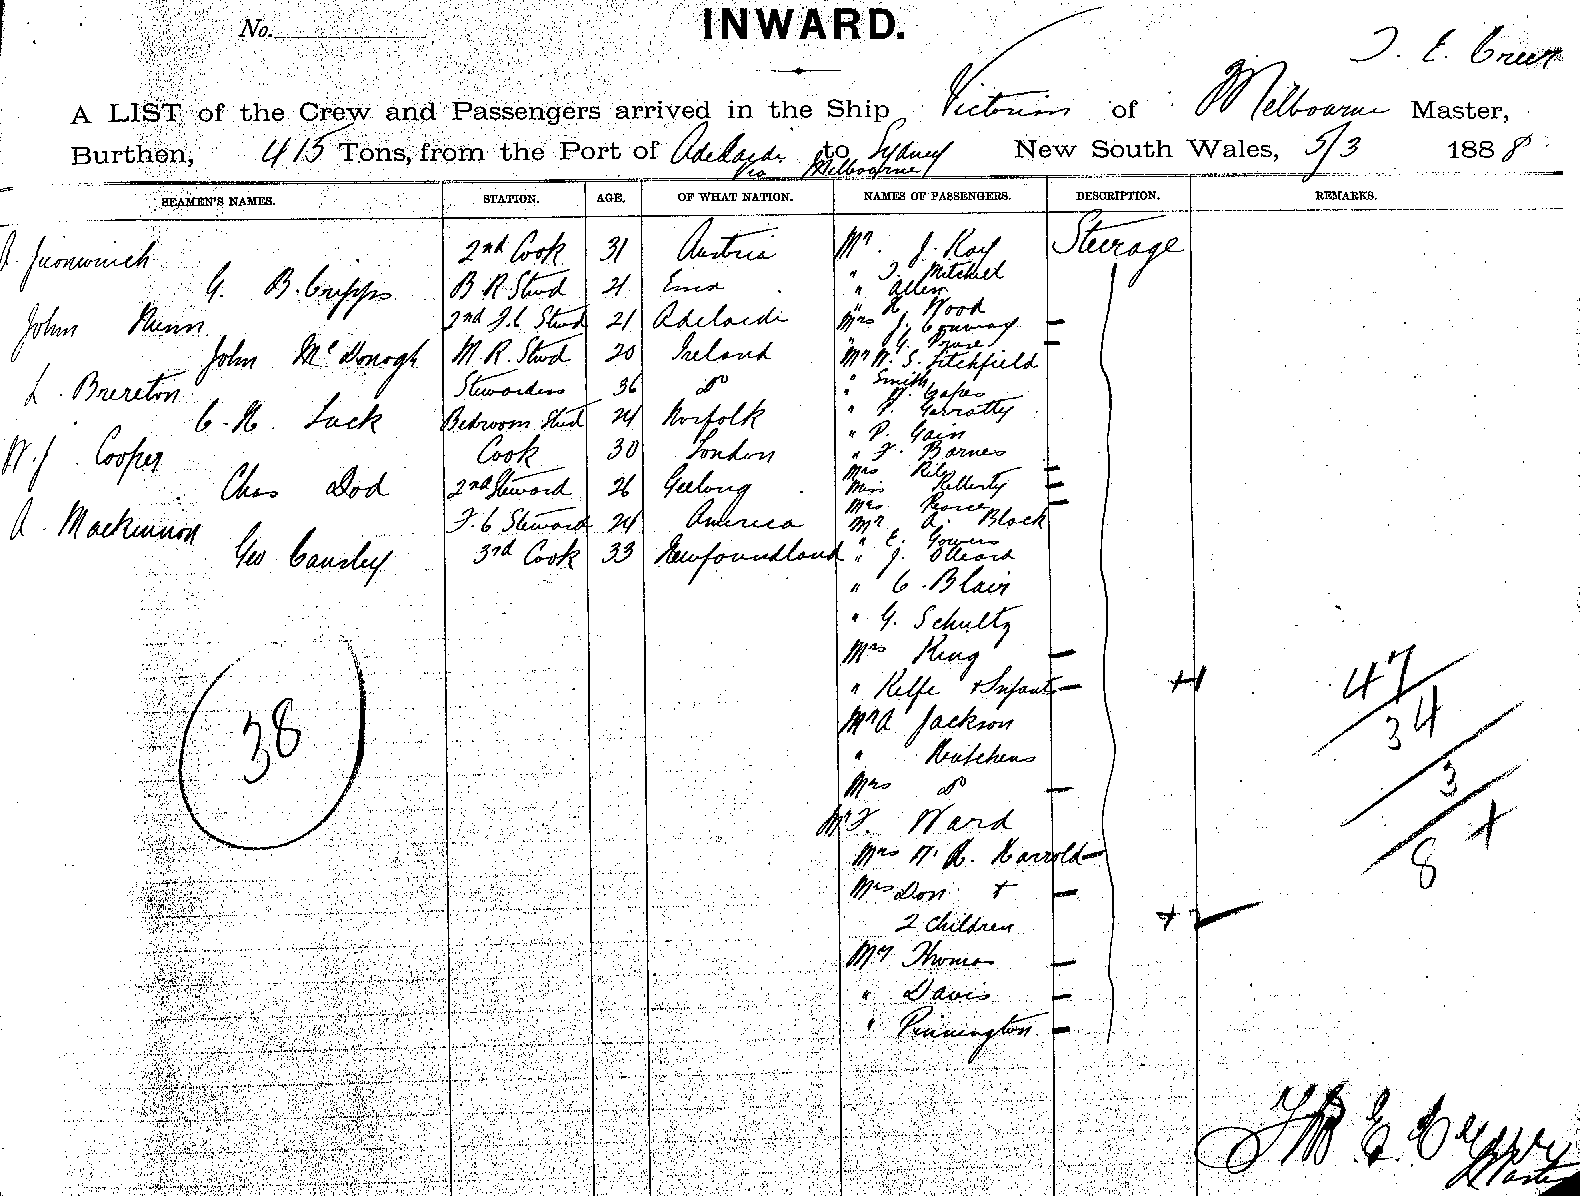 No.
INWARD.
A LIST of the Crew and Passengers arrived in the Ship Victorian of Melbourne Master,
Burthen, 415 Tons, from the Port of Adelaide to Sydney New South Wales, 5/3 1888
via Melbourne
SEAMEN'S NAMES. STATION. AGE. OF WHAT NATION. NAMES OF PASSENGERS. DESCRIPTION. REMARKS.
2nd Cook 31 Austria Mr. J. Ray Steerage
" T. Mitchel
G. B. Cripps B R Stwd 21 " Allen
" Wood
John 2nd F.C Stwd 21 Adelaide Mrs J. Conway
John McDonogh M. R. Stwd 20 Ireland Mr W. S. Litchfield
" Smith
L. Brereton Stewardess 36 Do "
" P. Garratty
C. H. Luck Bedroom Stwd 24 Norfolk " P. Gain
W. J. Cooper Cook 30 London " F. Barnes
Mrs
Chas Dod 2nd Steward 26 Geelong Miss
Mrs
A. Mackinnon F.C Steward 24 America Mr A. Black
" E. Gowers
Geo Causley 3rd Cook 33 Newfoundland " J.
" C. Blair
" G. Schultz
Mrs King
" Relfe + Infant +1 47
Mr A Jackson 34
38 " Hutchens
Mrs Do 3
Mr F. Ward
Mrs W. R. Harrold 8 +
Mrs Don +
2 Children + 2
Mr Thomas
" Davis
" Pinnington
Master